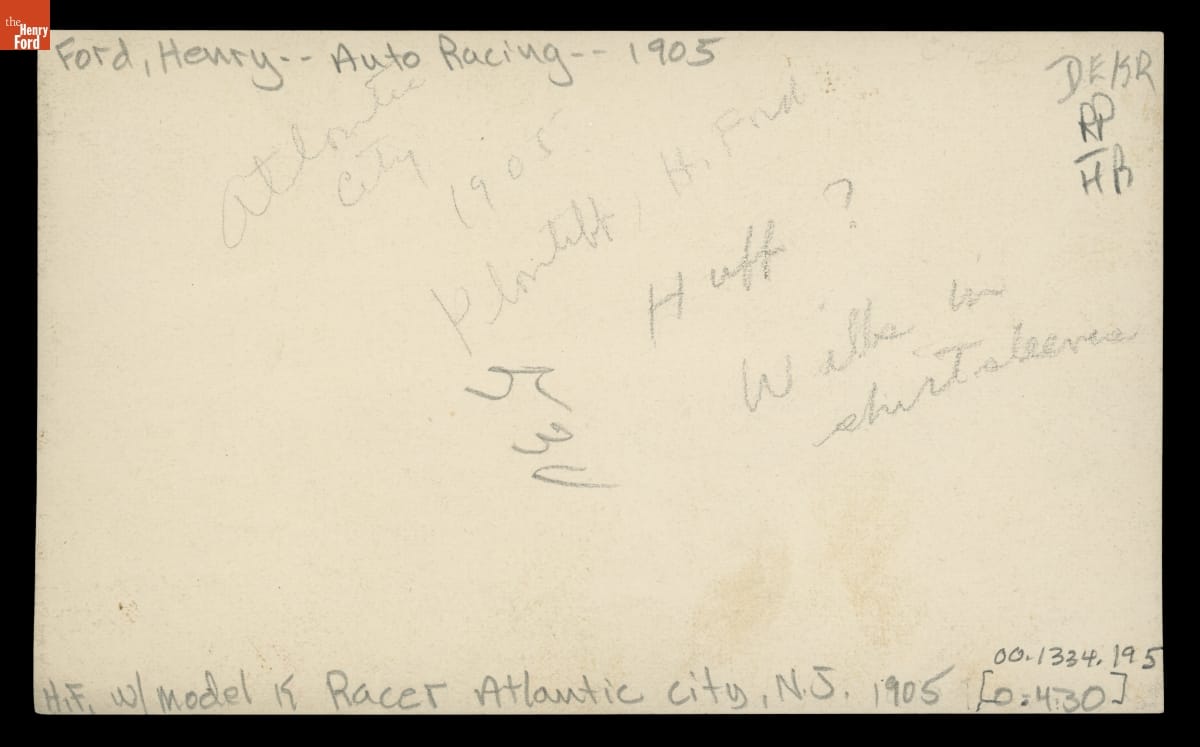 the
Henry
Ford
Ford, Henry-- Auto Racing-- 1905
DEKR
HB
Atlantic
City
1905
Plantiff, H. Ford
Huff ?
Wills in
shirt sleeves
00.1334.195
H.F. w/ model K Racer Atlantic City, N.J. 1905 [0.430]